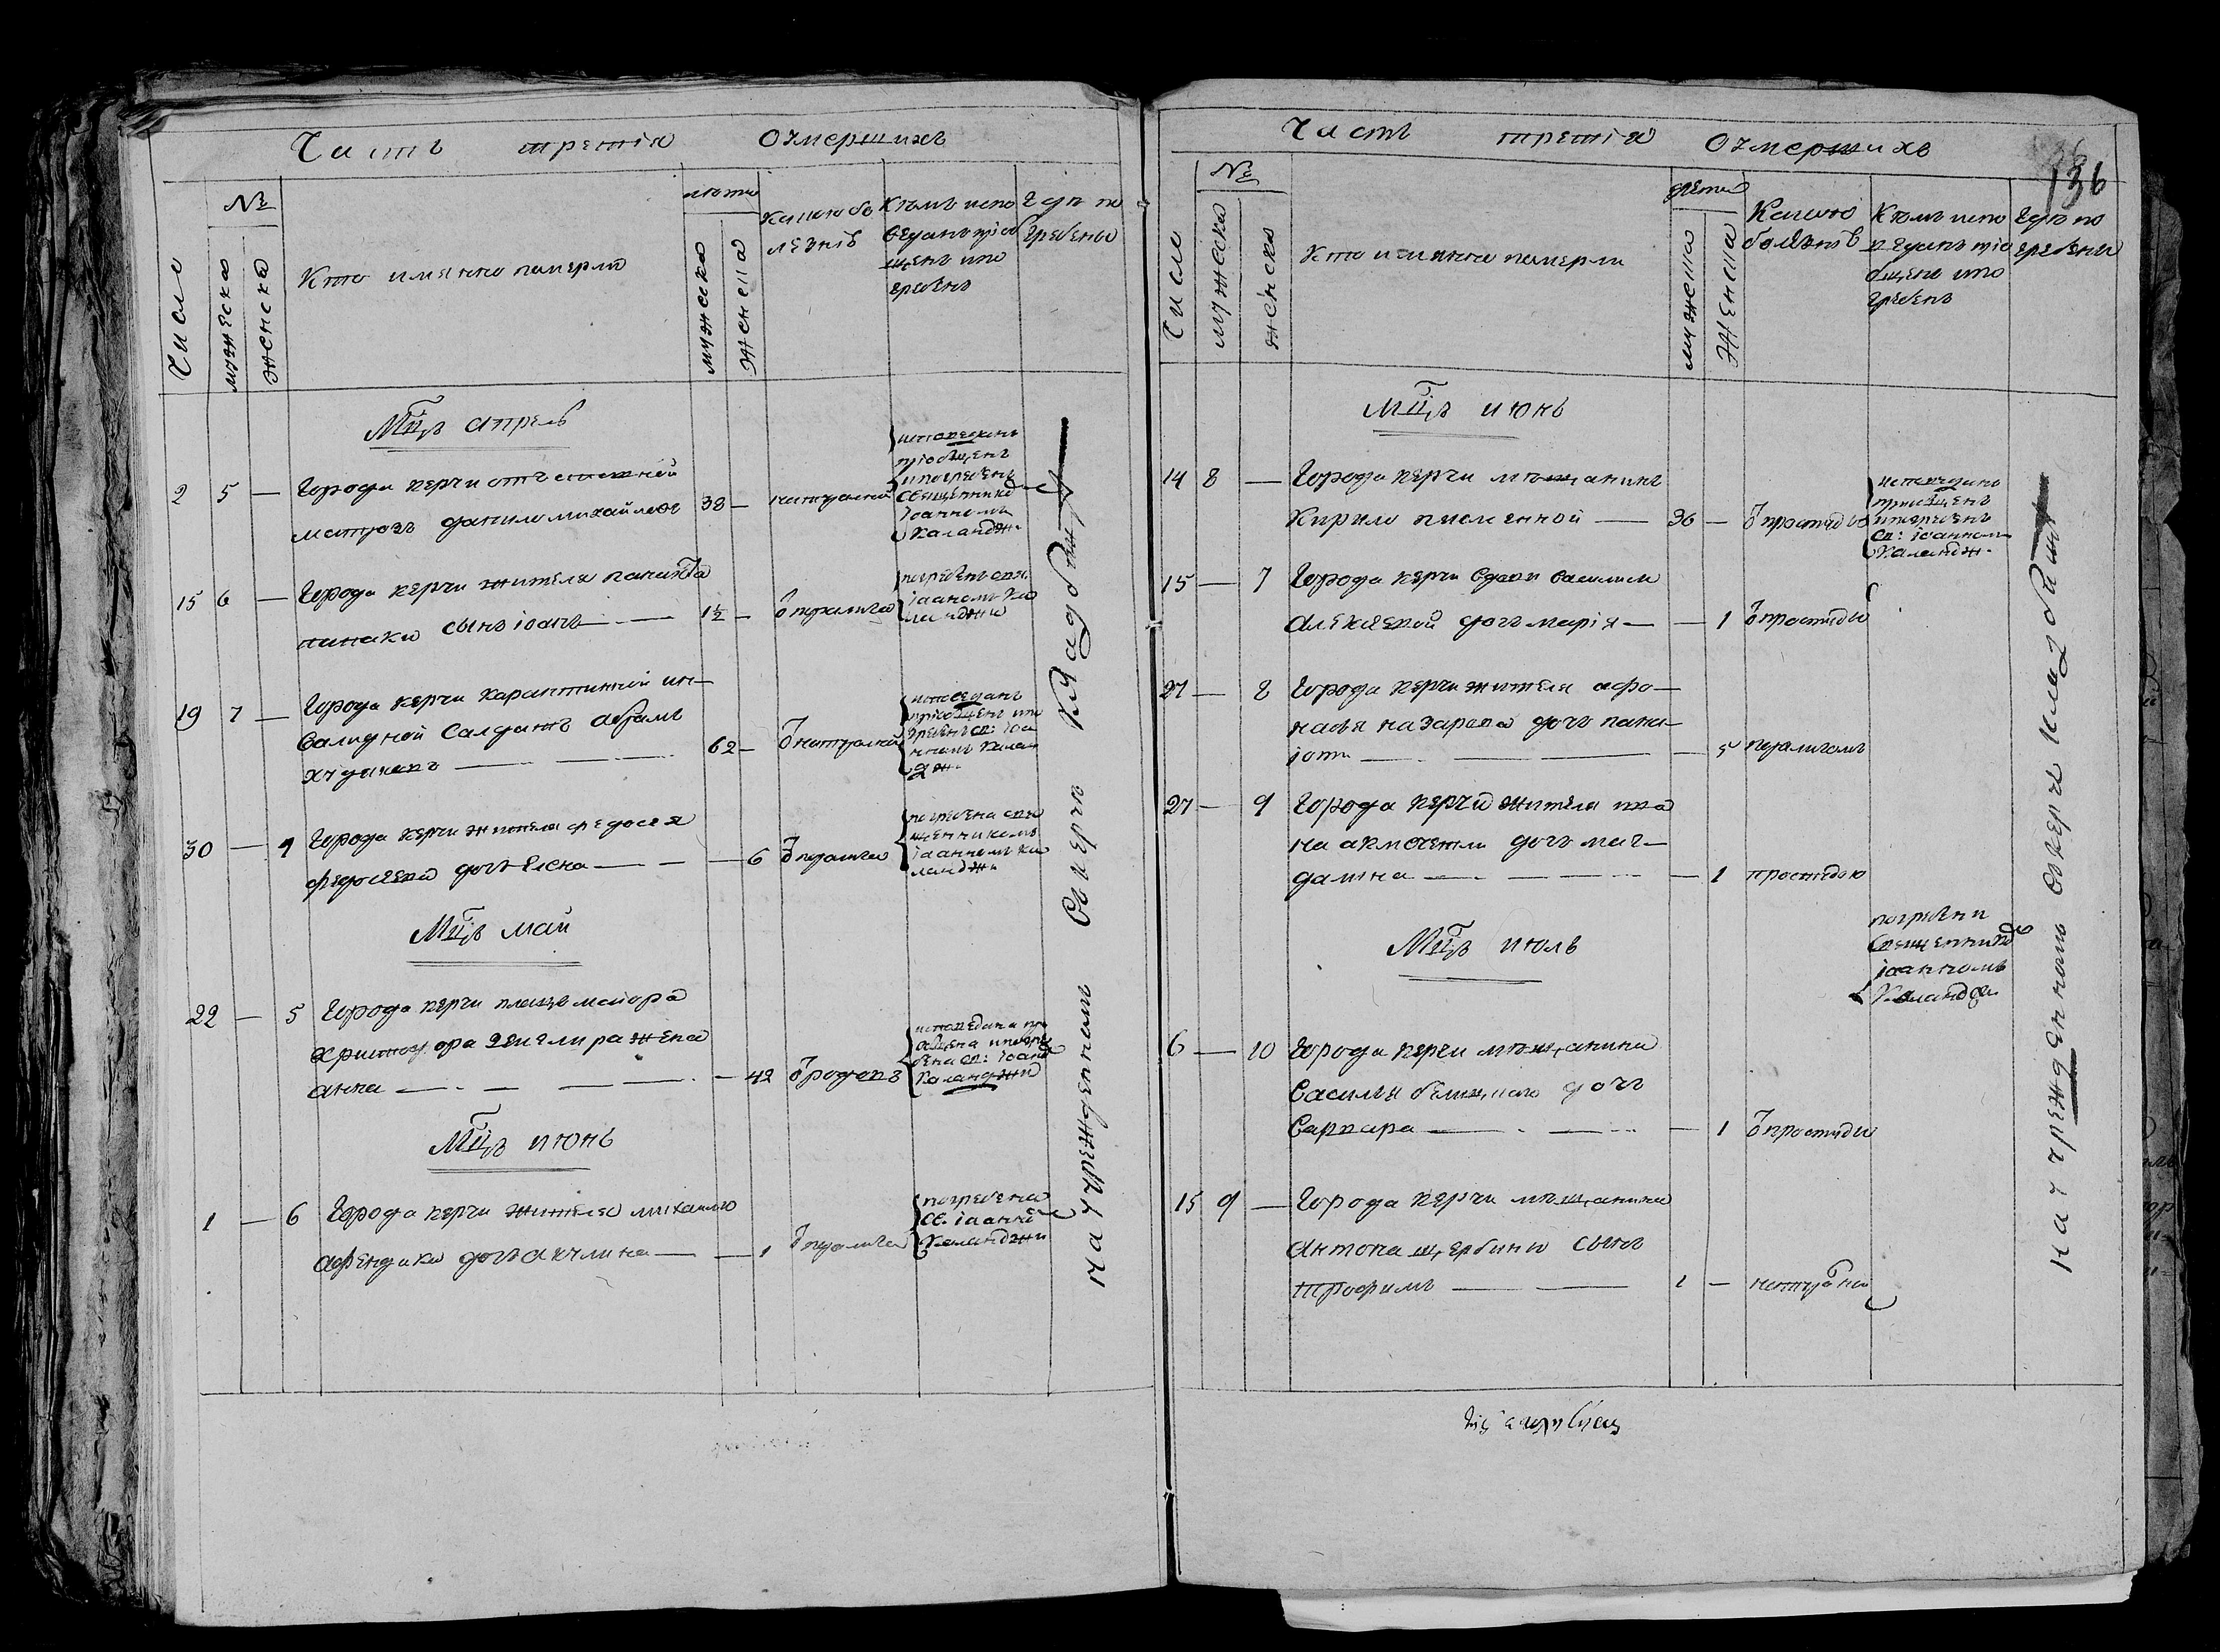 Часть третія Оумершихъ
Число
№
мужеска
женска
Кто имянно померли
лѣта
мужеска
женска
какою бо
лезнїю
Кѣмъ испо
веданъ прїоб
щенъ и по
гребенъ
Где по
гребены
Мцъ апрель
2 5 — Города керчи отъставной
матрозъ данило михайловъ 38 — натуралной
исповеданъ
прїобщенъ
и погребенъ
священникомъ
іоанномъ
Каланджи
15 6 — Города керчи жителя панаіота
папаки сынъ іоанъ — 1½ —
погребенъ свящ.
іоаномъ Ка
ланджи
19 7 — Города керчи карантинной ин—
валидной Салдатъ абрамъ
62 — натуралной
исповеданъ
прїобщенъ и по
гребенъ св: іоа
нномъ Калан
дж.
30 — 4 Города керчи жителя федосея
федосеева дочь Елена — — 6
погребена свя
щенникомъ
іоанномъ ка
ландж.
Мцъ май
22 — 5 Города керчи плацъ маіора
христофора жена
анна — — 42 родовъ
исповедана при
общена и погре
бена св: іоан
Каланджи
Мцъ июнь
1 — 6 Города керчи жителя михаила
афендики дочь акулина — — 1
погребена
св. іоанно
Каланджи
На учрежденномъ Сверхъ Кладбищѣ —
Часть третія Оумершихъ
136
Число
№
мужеска
женска
Кто имянно померли
лета
мужеска
женска
Какою
болезнїю
Кѣмъ испо
веданъ прїо
бщенъ и по
гребенъ
Где по
гребены
Мцъ июнь
14 8 — Города керчи мѣщанинъ
Кирило писменной — 36 — простуды
исповеданъ
приобщенъ
и погребенъ
св: іоанномъ
Каландж.
15 — 7 Города керчи вдовы василисы
Алексеевой дочь марія — — 1 простуды
27 — 8 Города керчи жителя афо—
насья назарова дочь пана—
іота — — 5
27 — 9 Города керчи жителя ива
на дочь маг—
далина — — 1 простудою
Мцъ июль
погребены
Священникомъ
іоанномъ
Каланджи
6 — 10 Города керчи мѣщанина
Василья дочь
Варвара — — 1 простуды
15 9 — Города керчи мѣщанина
Антона щербины сынъ
трофимъ — 1 —
на учрежденномъ Сверхъ кладбищѣ —